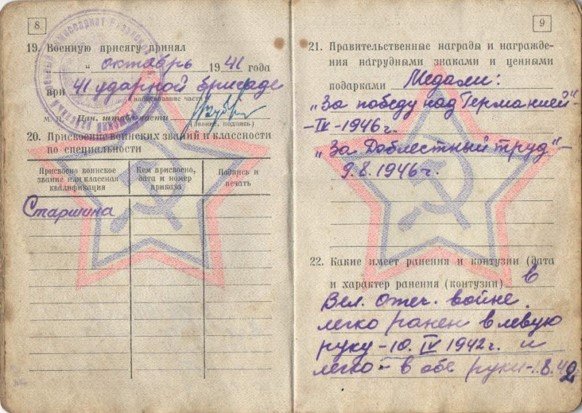 8
19. Военную присягу принял
„ октябрь 1941 года
при 41 ударной бригаде
(наименование части)
м.
20. Присвоение воинских званий и классности
по специальности
Присвоено воинское звание или классная квалификация
Кем присвоено, дата и номер приказа
Подпись и печать
Старшина
9
21. Правительственные награды и награжде-
ния нагрудными знаками и ценными
подарками Медали:
„За победу над Германией“
-IV-1946г.
„За Доблестный труд“-
9.8.1946г.
22. Какие имеет ранения и контузии (дата
и характер ранения (контузии) в
Вел. Отеч. войне.
легко ранен в левую
руку-10.IV 1942г. и
легко- в обе руки-